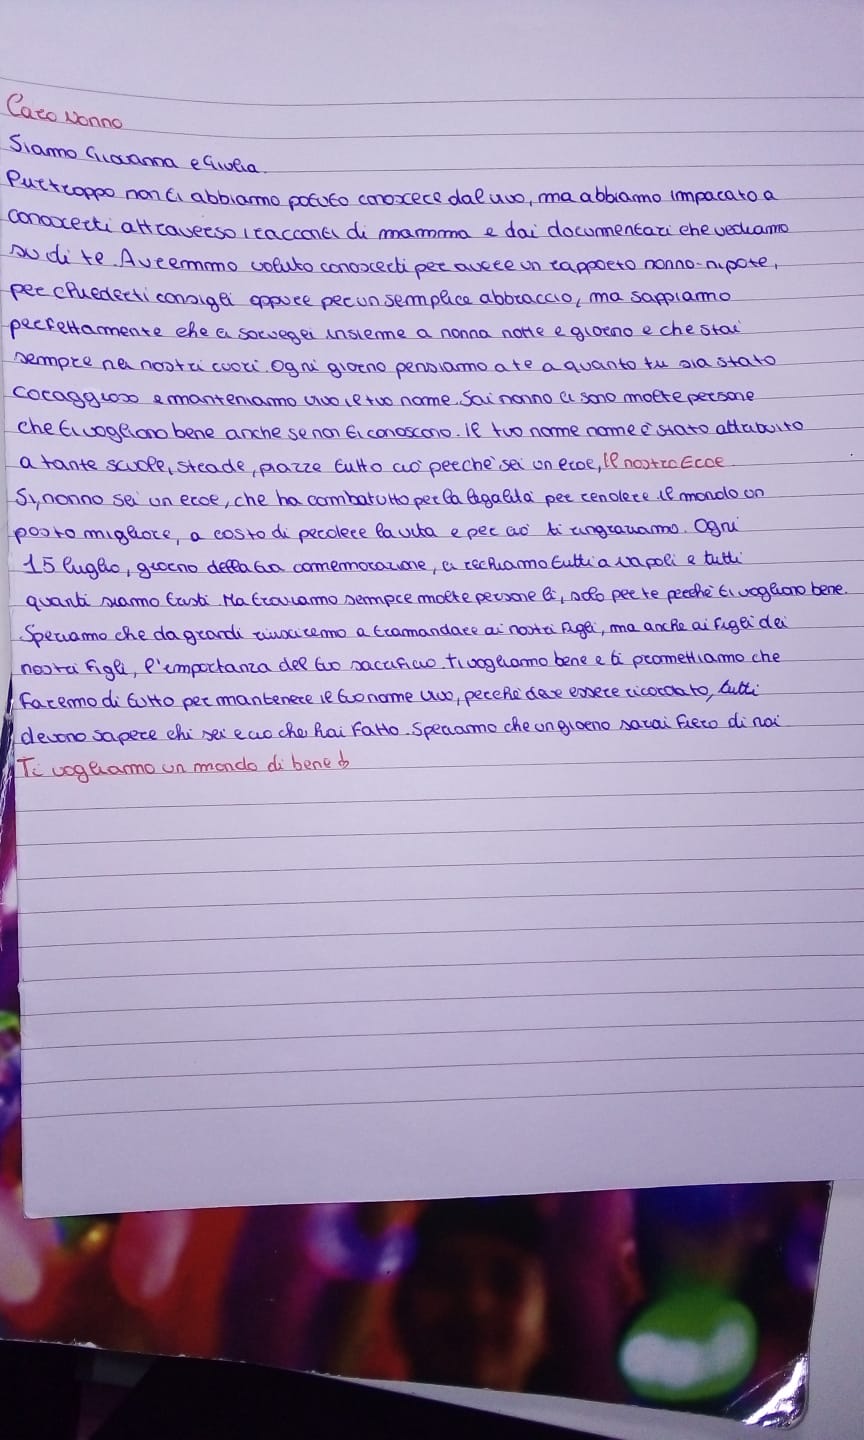 Caro Nonno
Siamo Giovanna e Giulia.
Purtroppo non ti abbiamo potuto conoscere dal vivo, ma abbiamo imparato a
conoscerti attraverso i racconti di mamma e dai documentari che vediamo
su di te. Avremmo voluto conoscerti per avere un rapporto nonno-nipote,
per chiederti consigli oppure per un semplice abbraccio, ma sappiamo
perfettamente che ci sorvegli insieme a nonna notte e giorno e che stai
sempre nei nostri cuori. Ogni giorno pensiamo a te a quanto tu sia stato
coraggioso e manteniamo vivo il tuo nome. Sai nonno ci sono molte persone
che ti vogliono bene anche se non ti conoscono. Il tuo nome nome è stato attribuito
a tante scuole, strade, piazze tutto ciò perchè sei un eroe, il nostro Eroe
Si, nonno sei un eroe, che ha combattutto per la legalità per rendere il mondo un
posto migliore, a costo di perdere la vita e per ciò ti ringraziamo. Ogni
15 luglio, giorno della tua commemorazione, ci rechiamo tutti a Napoli e tutti
quanti siamo tristi. Ma troviamo sempre molte persone lì, solo per te perchè ti vogliono bene.
Speriamo che da grandi riusciremo a tramandare ai nostri figli, ma anche ai figli dei
nostri figli, l'importanza del tuo sacrificio. ti vogliamo bene e ti promettiamo che
faremo di tutto per mantenere il tuo nome vivo, perchè deve essere ricordato, tutti
devono sapere chi sei e ciò che hai fatto. Speriamo che un giorno sarai fiero di noi
Ti vogliamo un mondo di bene